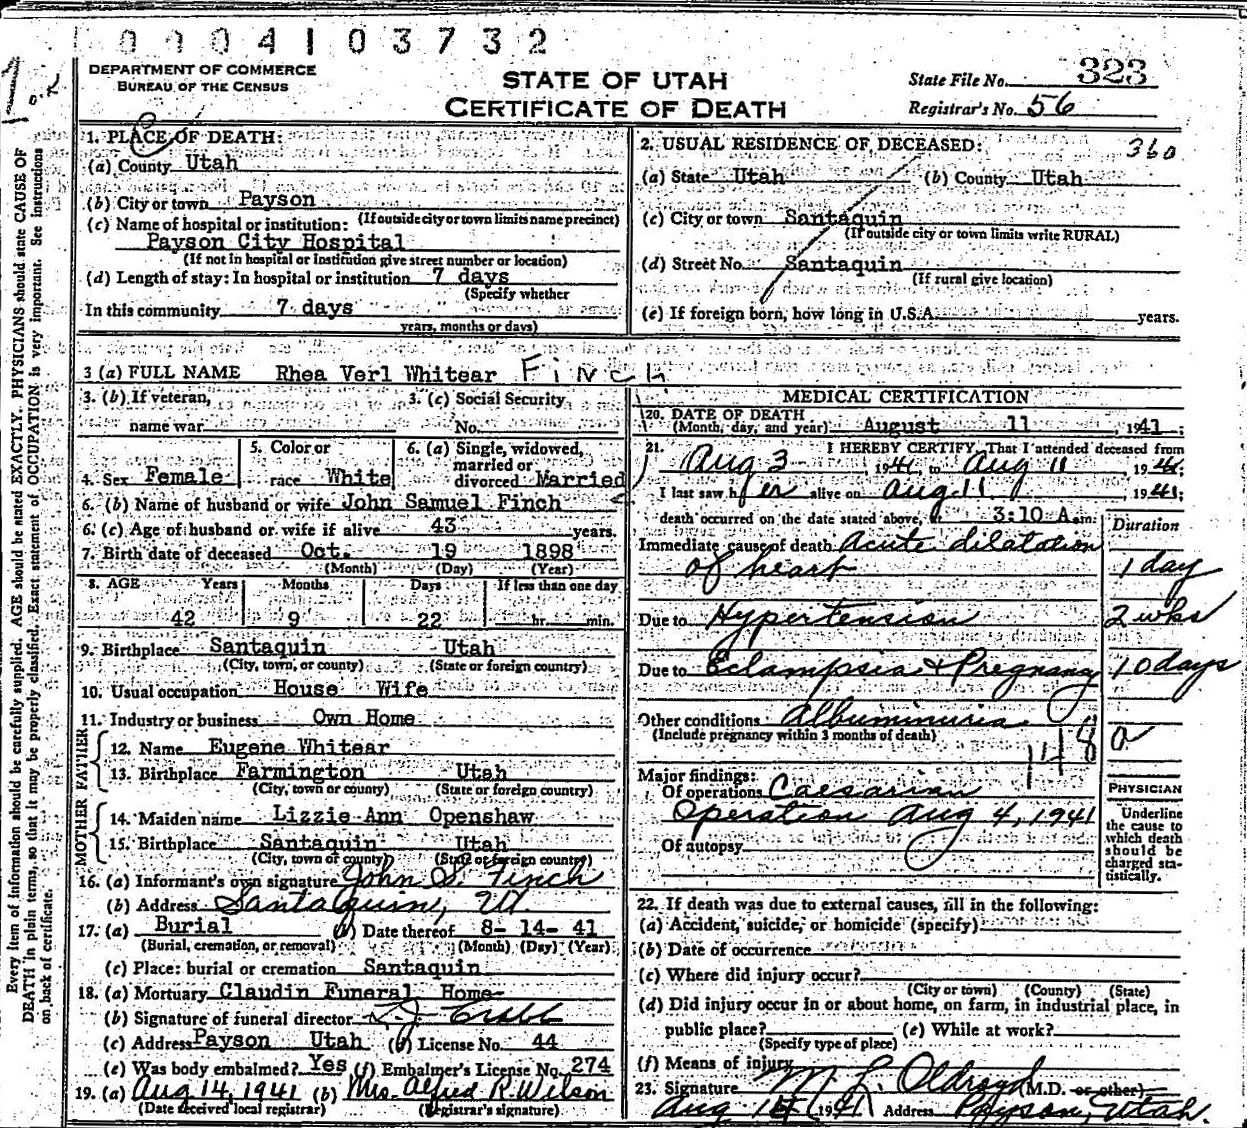 0004103732
DEPARTMENT OF COMMERCE
BUREAU OF THE CENSUS
STATE OF UTAH
CERTIFICATE OF DEATH
State File No. 323
Registrar's No. 56
Every item of information should be carefully supplied. AGE should be stated EXACTLY. PHYSICIANS should state CAUSE OF
DEATH in plain terms, so that it may be properly classified. Exact statement of OCCUPATION is very important. See instructions
on back of certificate.
1. PLACE OF DEATH:
(a) County Utah
(b) City or town Payson
(If outside city or town limits name precinct)
(c) Name of hospital or institution:
Payson City Hospital
(If not in hospital or institution give street number or location)
(d) Length of stay: In hospital or institution 7 days
(Specify whether
In this community 7 days
years, months or days)
2. USUAL RESIDENCE OF DECEASED: 360
(a) State Utah (b) County Utah
(c) City or town Santaquin
(If outside city or town limits write RURAL)
(d) Street No. Santaquin
(If rural give location)
(e) If foreign born, how long in U.S.A. years.
3 (a) FULL NAME Rhea Verl Whitear Finch
3. (b) If veteran,
name war
3. (c) Social Security
No.
4. Sex Female
5. Color or
race White
6. (a) Single, widowed,
married or
divorced Married
6. (b) Name of husband or wife John Samuel Finch
6. (c) Age of husband or wife if alive 43 years.
7. Birth date of deceased Oct. 19 1898
(Month) (Day) (Year)
8. AGE Years Months Days If less than one day
42 9 22 hr. min.
9. Birthplace Santaquin Utah
(City, town, or county) (State or foreign country)
10. Usual occupation House Wife
11. Industry or business Own Home
FATHER
12. Name Eugene Whitear
13. Birthplace Farmington Utah
(City, town or county) (State or foreign country)
MOTHER
14. Maiden name Lizzie Ann Openshaw
15. Birthplace Santaquin Utah
(City, town or county) (State or foreign country)
16. (a) Informant's own signature John S. Finch
(b) Address Santaquin, Ut
17. (a) Burial (b) Date thereof 8- 14- 41
(Burial, cremation, or removal) (Month) (Day) (Year)
(c) Place: burial or cremation Santaquin
18. (a) Mortuary Claudin Funeral Home
(b) Signature of funeral director
(c) Address Payson Utah (d) License No. 44
(e) Was body embalmed? Yes (f) Embalmer's License No. 274
19. (a) Aug 14, 1941 (b) Mrs. Alfred R. Wilson
(Date received local registrar) (Registrar's signature)
MEDICAL CERTIFICATION
20. DATE OF DEATH
(Month, day, and year) August 11, 1941;
21. I HEREBY CERTIFY, That I attended deceased from
Aug 3 1941, to Aug 11 1941;
I last saw her alive on Aug 11 1941;
death occurred on the date stated above, at 3:10 A.m.
Duration
Immediate cause of death Acute dilatation
of heart 1 day
Due to Hypertension 2 wks
Due to Eclampsia & Pregnancy 10 days
Other conditions Albuminuria
(Include pregnancy within 3 months of death)
Major findings:
Of operations Caesarian
Operation Aug 4, 1941
Of autopsy
PHYSICIAN
Underline
the cause to
which death
should be
charged sta-
tistically.
22. If death was due to external causes, fill in the following:
(a) Accident, suicide, or homicide (specify)
(b) Date of occurrence
(c) Where did injury occur?
(City or town) (County) (State)
(d) Did injury occur in or about home, on farm, in industrial place, in
public place? (e) While at work?
(Specify type of place)
(f) Means of injury
23. Signature M. L. Oldroyd M.D. or other)
Aug 1941 Address Payson, Utah.